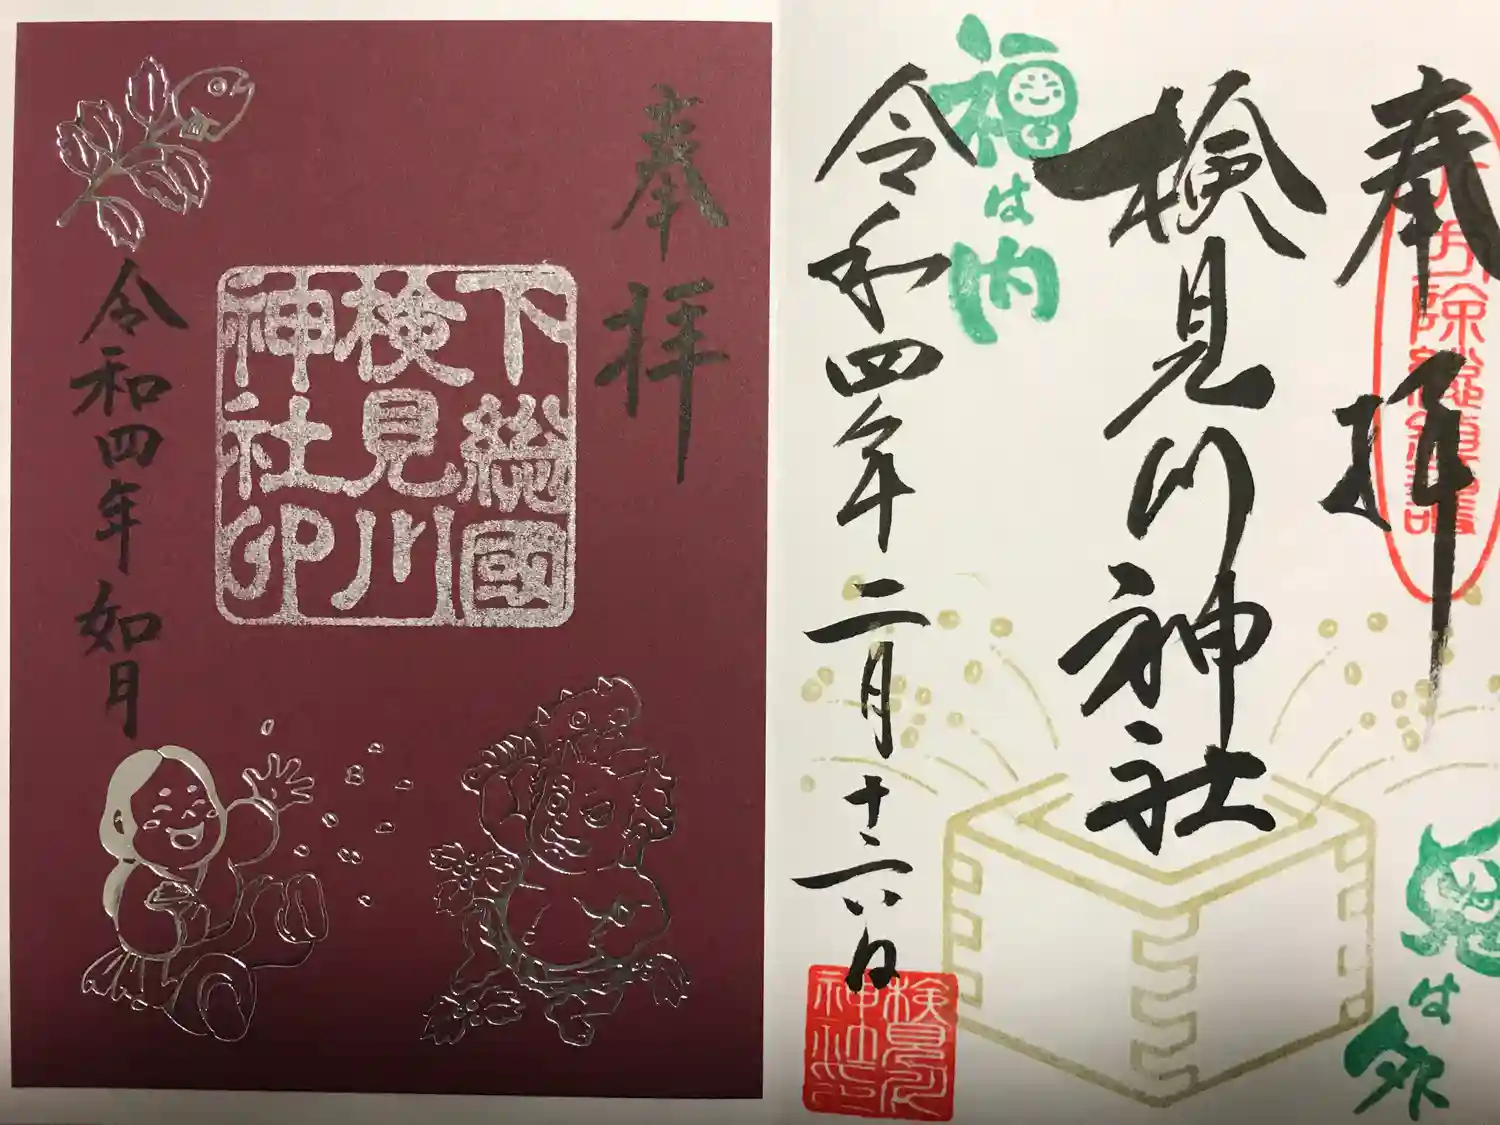 奉拝
方除
検見川神社
福は内
鬼は外
令和四年二月十六日
検見川
神社
奉拝
下総國
検見川
神社印
令和四年如月